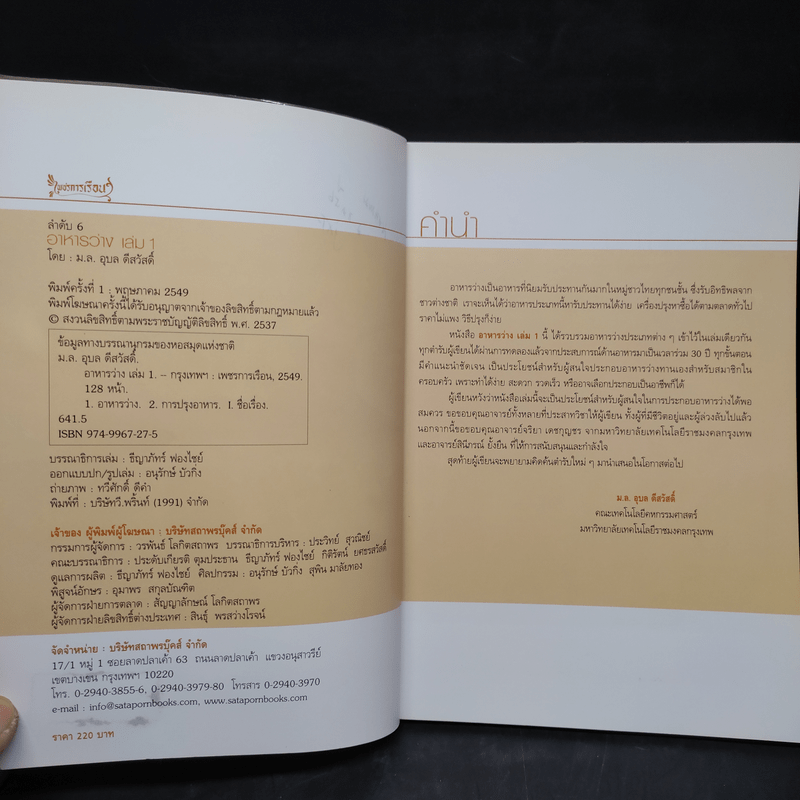 เพชรการเรือน
ลำดับ 6
อาหารว่าง เล่ม 1
โดย : ม.ล. อุบล ดีสวัสดิ์
พิมพ์ครั้งที่ 1 : พฤษภาคม 2549
พิมพ์โฆษณาครั้งนี้ได้รับอนุญาตจากเจ้าของลิขสิทธิ์ตามกฎหมายแล้ว
© สงวนลิขสิทธิ์ตามพระราชบัญญัติลิขสิทธิ์ พ.ศ. 2537
ข้อมูลทางบรรณานุกรมของหอสมุดแห่งชาติ
ม.ล. อุบล ดีสวัสดิ์.
อาหารว่าง เล่ม 1. -- กรุงเทพฯ : เพชรการเรือน, 2549.
128 หน้า.
1. อาหารว่าง. 2. การปรุงอาหาร. I. ชื่อเรื่อง.
641.5
ISBN 974-9967-27-5
บรรณาธิการเล่ม : ธีญาภัทร์ ฟองไซย์
ออกแบบปก/รูปเล่ม : อนุรักษ์ บัวกิ่ง
ถ่ายภาพ : ทวีศักดิ์ ดีคำ
พิมพ์ที่ : บริษัทวี.พริ้นท์ (1991) จำกัด
เจ้าของ ผู้พิมพ์ผู้โฆษณา : บริษัทสถาพรบุ๊คส์ จำกัด
กรรมการผู้จัดการ : วรพันธ์ โลกิตสถาพร บรรณาธิการบริหาร : ประวิทย์ สุวณิชย์
คณะบรรณาธิการ : ประดับเกียรติ ตุมประธาน ธีญาภัทร์ ฟองไซย์ กิติรัตน์ ยศธรสวัสดิ์
ดูแลการผลิต : ธีญาภัทร์ ฟองไซย์ ศิลปกรรม : อนุรักษ์ บัวกิ่ง สุพิน มาลัยทอง
พิสูจน์อักษร : อุมาพร สกุลบัณฑิต
ผู้จัดการฝ่ายการตลาด : สัญญาลักษณ์ โลกิตสถาพร
ผู้จัดการฝ่ายลิขสิทธิ์ต่างประเทศ : สินธุ์ พรสว่างโรจน์
จัดจำหน่าย : บริษัทสถาพรบุ๊คส์ จำกัด
17/1 หมู่ 1 ซอยลาดปลาเค้า 63 ถนนลาดปลาเค้า แขวงอนุสาวรีย์
เขตบางเขน กรุงเทพฯ 10220
โทร. 0-2940-3855-6, 0-2940-3979-80 โทรสาร 0-2940-3970
e-mail : info@satapornbooks.com, www.satapornbooks.com
ราคา 220 บาท
คำนำ
อาหารว่างเป็นอาหารที่นิยมรับประทานกันมากในหมู่ชาวไทยทุกชนชั้น ซึ่งรับอิทธิพลจาก
ชาวต่างชาติ เราจะเห็นได้ว่าอาหารประเภทนี้หารับประทานได้ง่าย เครื่องปรุงหาซื้อได้ตามตลาดทั่วไป
ราคาไม่แพง วิธีปรุงก็ง่าย
หนังสือ อาหารว่าง เล่ม 1 นี้ ได้รวบรวมอาหารว่างประเภทต่าง ๆ เข้าไว้ในเล่มเดียวกัน
ทุกตำรับผู้เขียนได้ผ่านการทดลองแล้วจากประสบการณ์ด้านอาหารมาเป็นเวลาร่วม 30 ปี ทุกขั้นตอน
มีคำแนะนำชัดเจน เป็นประโยชน์สำหรับผู้สนใจประกอบอาหารว่างทานเองสำหรับสมาชิกใน
ครอบครัว เพราะทำได้ง่าย สะดวก รวดเร็ว หรืออาจเลือกประกอบเป็นอาชีพก็ได้
ผู้เขียนหวังว่าหนังสือเล่มนี้จะเป็นประโยชน์สำหรับผู้สนใจในการประกอบอาหารว่างได้พอ
สมควร ขอขอบคุณอาจารย์ทั้งหลายที่ประสาทวิชาให้ผู้เขียน ทั้งผู้ที่มีชีวิตอยู่และผู้ล่วงลับไปแล้ว
นอกจากนี้ขอขอบคุณอาจารย์จริยา เดชกุญชร จากมหาวิทยาลัยเทคโนโลยีราชมงคลกรุงเทพ
และอาจารย์สินีภรณ์ ยั่งยืน ที่ให้การสนับสนุนและกำลังใจ
สุดท้ายผู้เขียนจะพยายามคิดค้นตำรับใหม่ ๆ มานำเสนอในโอกาสต่อไป
ม.ล. อุบล ดีสวัสดิ์
คณะเทคโนโลยีคหกรรมศาสตร์
มหาวิทยาลัยเทคโนโลยีราชมงคลกรุงเทพ